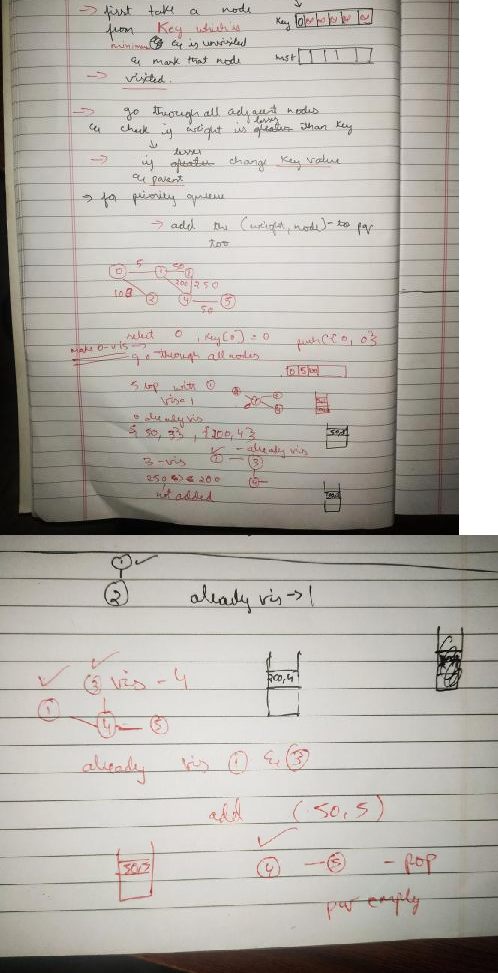 → first take a node
from Key which is
minimum & is unvisited
& mark that node
→ visited.
Key 0 ∞ ∞ ∞ ∞
mst
→ go through all adjacent nodes
& check if weight is greater lesser than key
↓
→ if greater lesser change key value
& parent
→ for priority queue
→ add the (weight, node) - to pq
too
0 5 1 50 3
100 200 250
2 4 50 5
select 0, key[0] = 0 push({0, 0})
make 0-vis →
go through all nodes
0 5 100
5 top with ①
vis = 1
0 already vis
{50, 3}, {200, 4}
- already vis
① — ③
3 - vis
④
200, 4
not added
①
②
already vis → 1
③ vis - 4
200, 4
① ④ ⑤
already vis ① & ③
add (50, 5)
④ — ⑤ - pop
empty